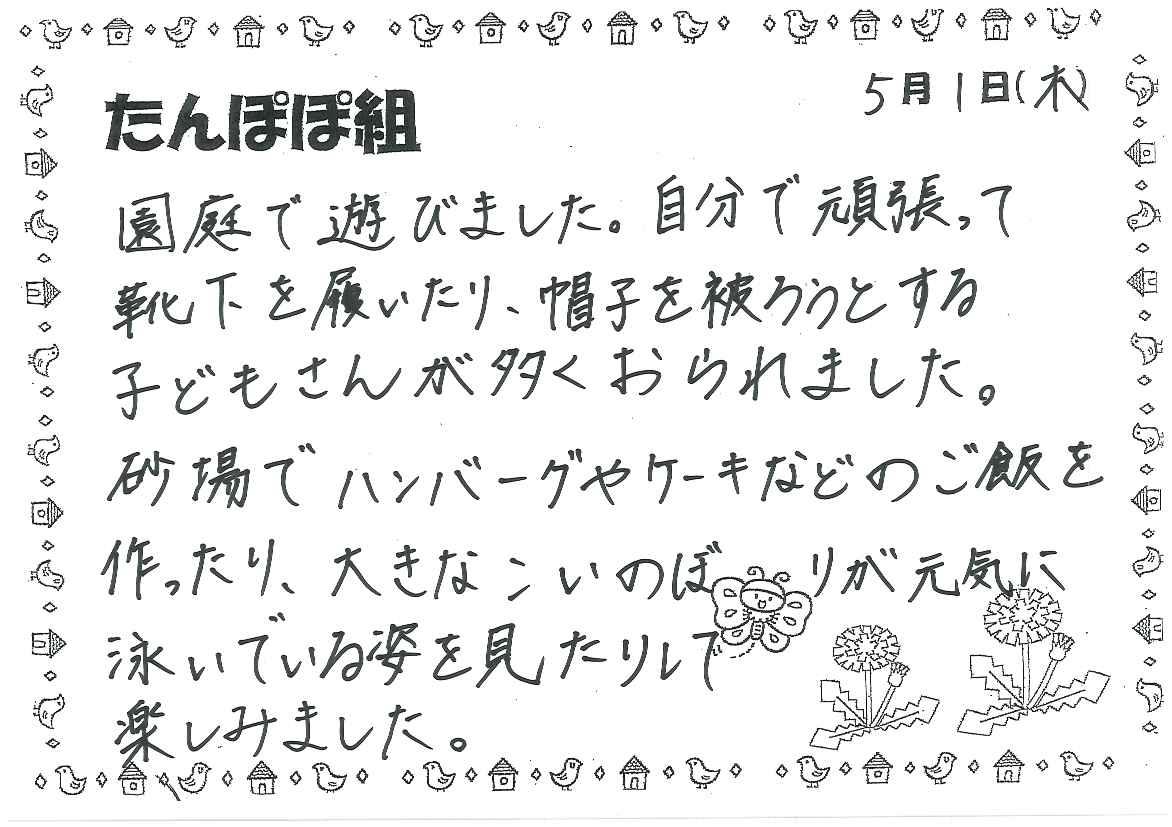 たんぽぽ組
5月1日(木)
園庭で遊びました。自分で頑張って
靴下を履いたり、帽子を被ろうとする
子どもさんが多くおられました。
砂場でハンバーグやケーキなどのご飯を
作ったり、大きなこいのぼりが元気に
泳いでいる姿を見たりして
楽しみました。